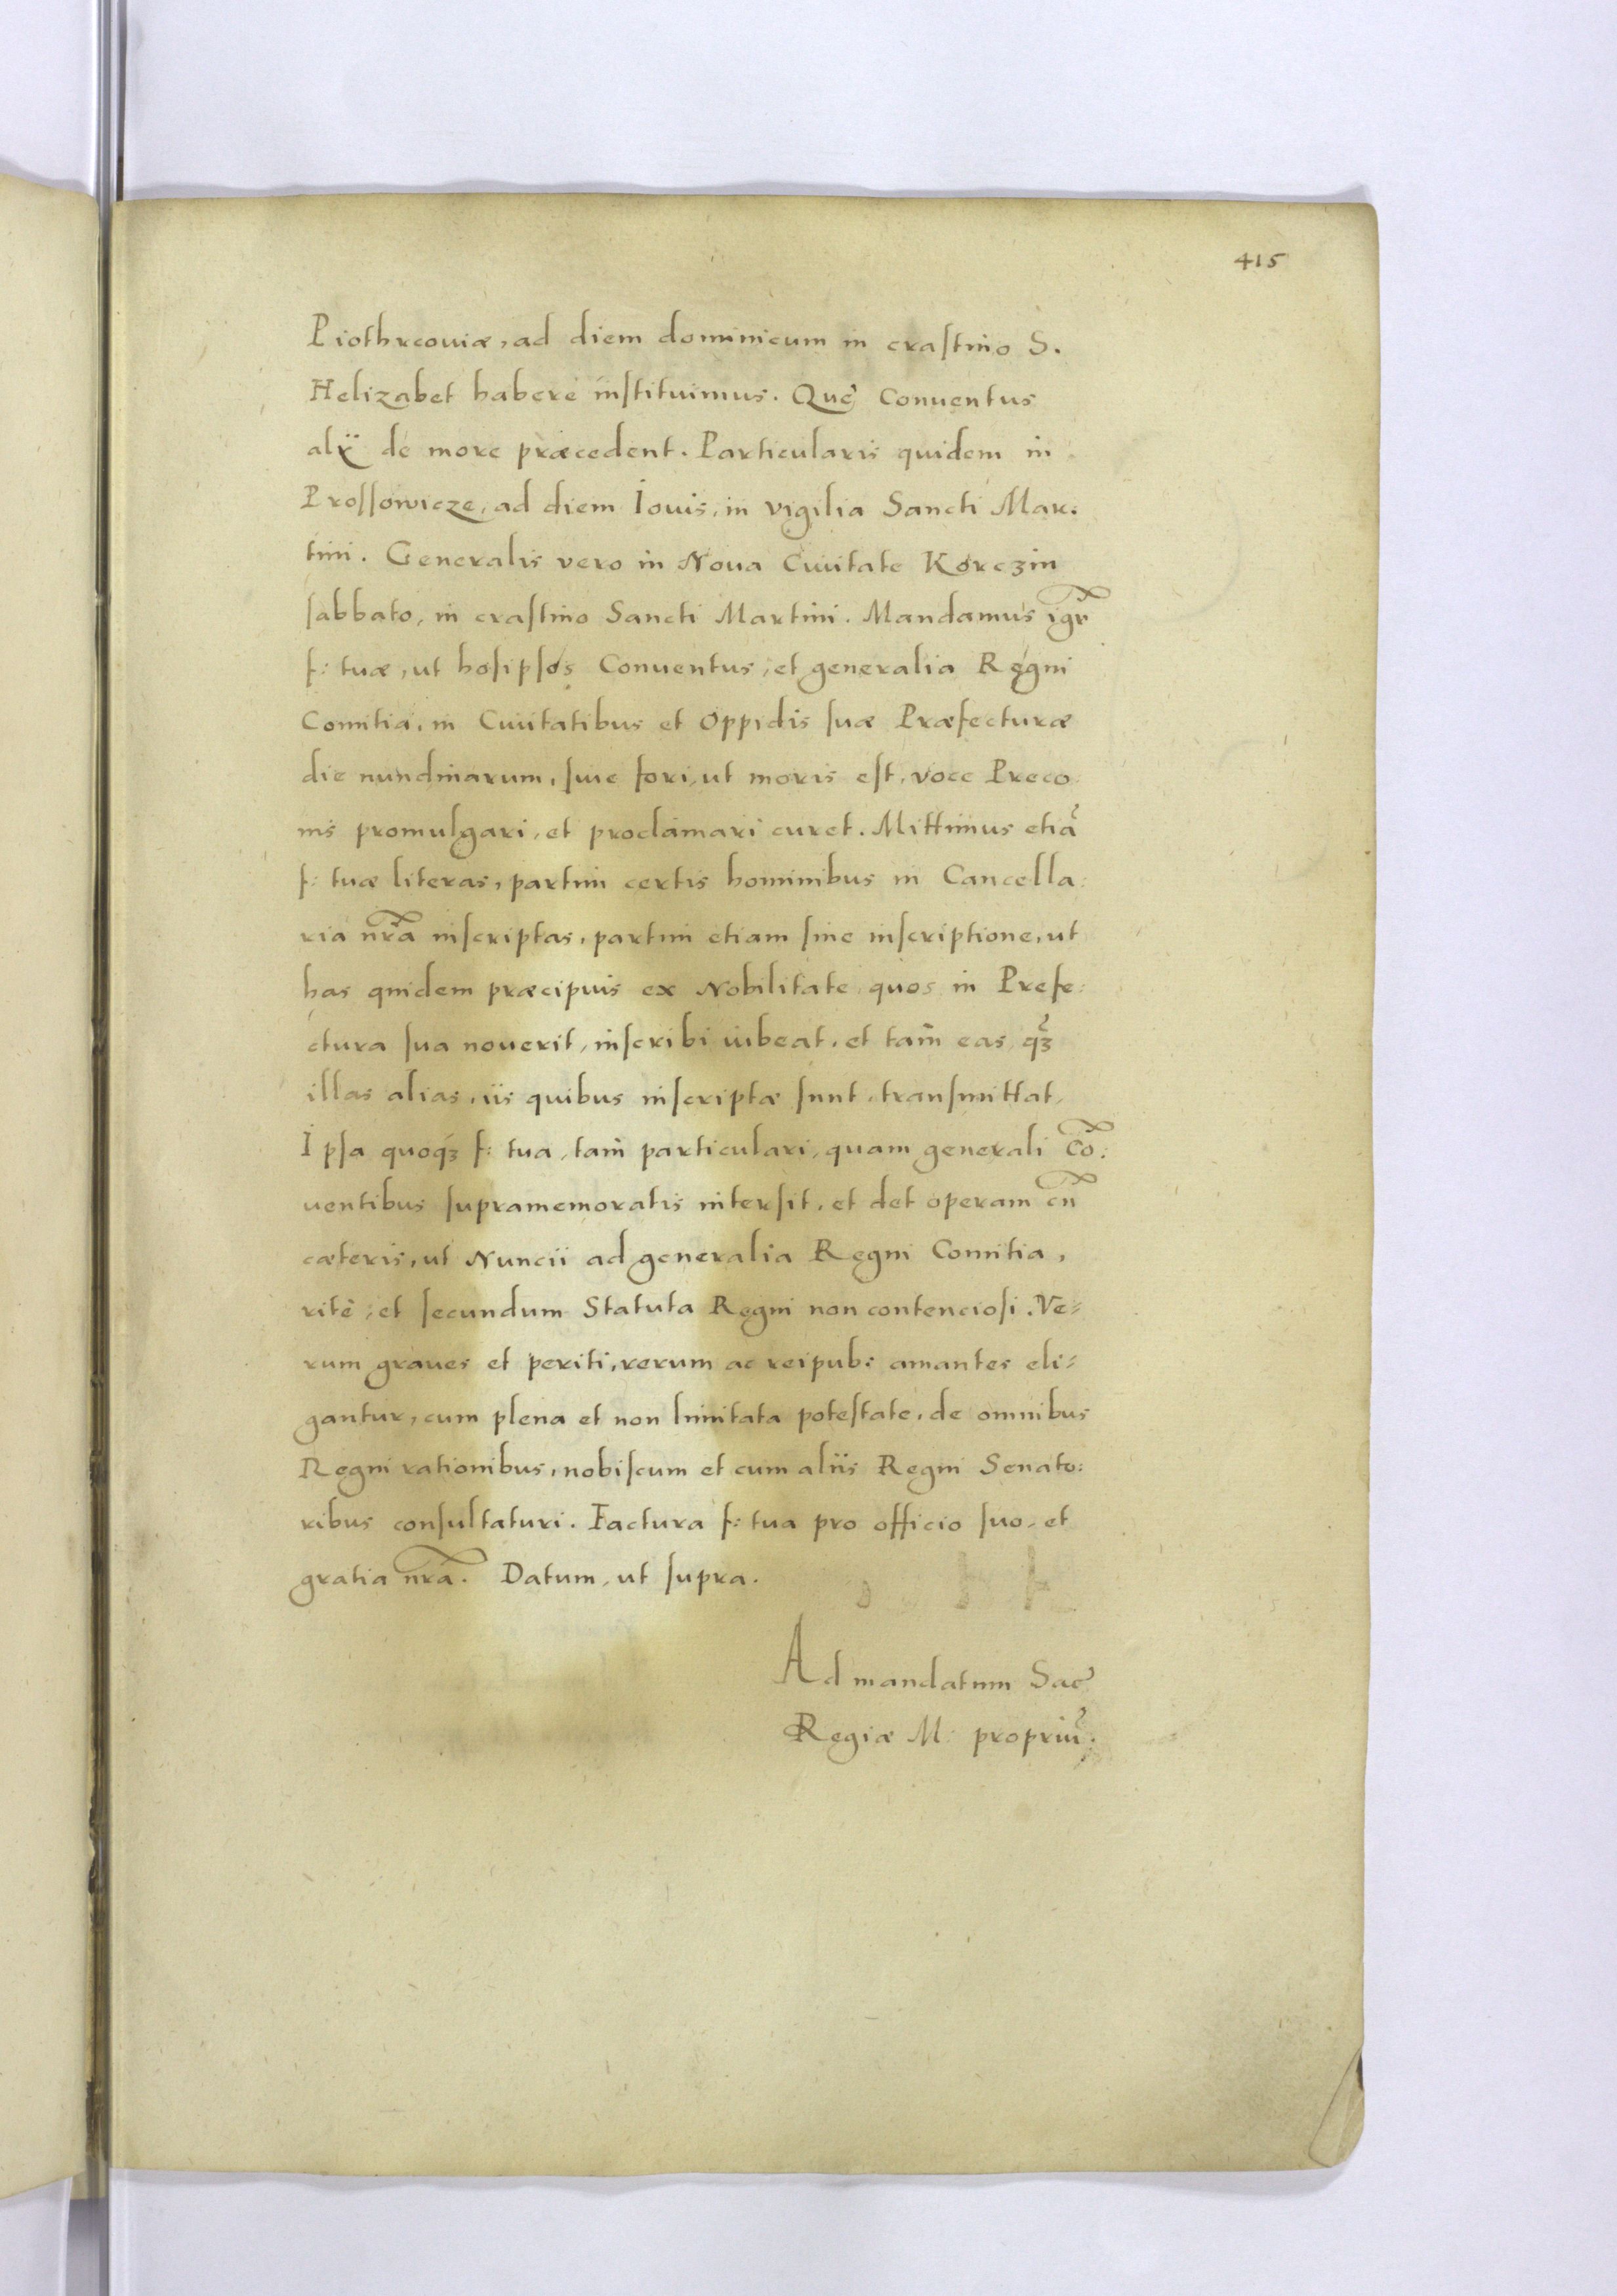 415
Piothrcouiæ, ad diem dominicum in craſtino S.
Helizabet habere inſtituimus. Què Conuentus
alÿ de more præcedent. Particularis quidem in
Proſſowicze, ad diem Iouis, in vigilia Sancti Mar:
tini. Generalis vero in Noua Ciuitate Korczin
ſabbato, in craſtino Sancti Martini. Mandamus igr̃
f: tuæ, ut hoſipſos Conuentus, et generalia Regni
Comitia, in Ciuitatibus et Oppidis ſuæ Præfecturæ
die nundinarum, ſiue fori, ut moris eſt, voce Preco:
nis promulgari, et proclamari curet. Mittimus etiã
f: tuæ literas, partim certis hominibus in Cancella:
ria nr̃a inſcriptas, partim etiam ſine inſcriptione, ut
has quidem præcipuis ex Nobilitate quos in Prefe:
ctura ſua nouerit, inſcribi iubeat, et tam̃ eas, q̃ȝ
illas alias, iis quibus inſcriptæ ſunt, tranſmittat,
Ipſa quoqȝ f: tua, tam̃ particulari, quam generali Cõ:
uentibus ſupramemoratis interſit, et det operam cũ
cæteris, ut Nuncii ad generalia Regni Comitia,
ritè, et ſecundum Statuta Regni non contencioſi. Ve=
rum graues et periti, rerum ac reipub: amantes eli=
gantur, cum plena et non limitata poteſtate, de omnibus
Regni rationibus, nobiſcum et cum aliis Regni Senato:
ribus conſultaturi. Factura f: tua pro officio ſuo, et
gratia nr̃a. Datum, ut ſupra.
Ad mandatum Sac̃
Regiæ M: propriũ: